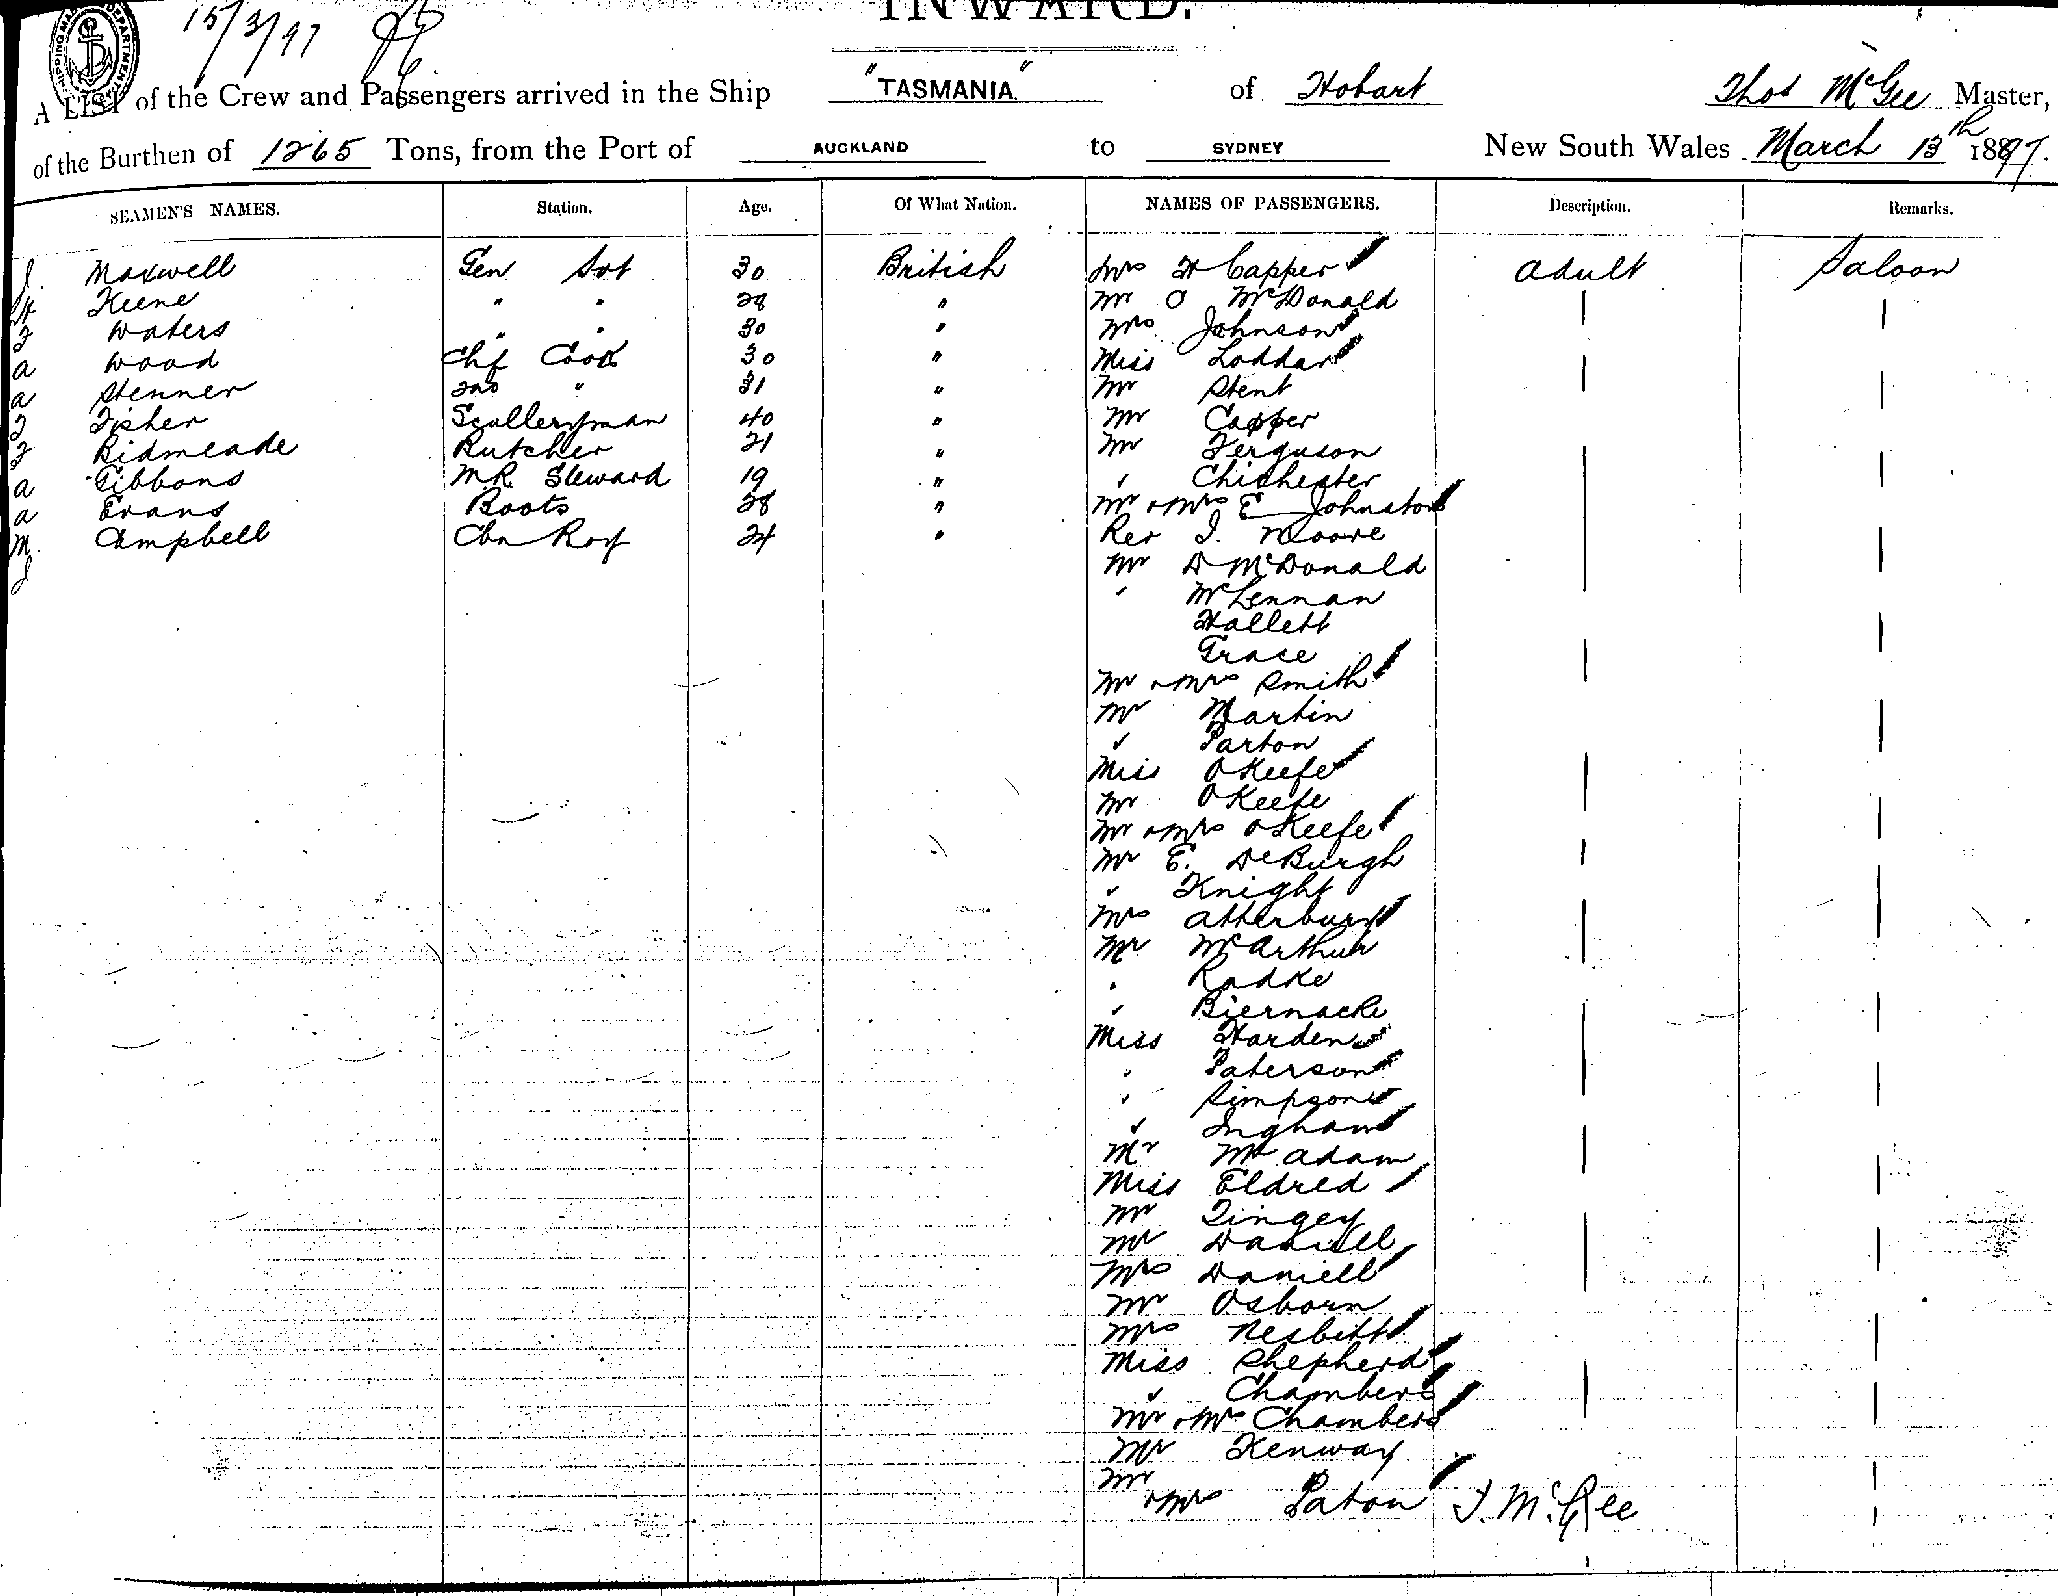 INWARD.
15/3/97
A LIST of the Crew and Passengers arrived in the Ship "TASMANIA" of Hobart Thos McGee Master,
of the Burthen of 1265 Tons, from the Port of AUCKLAND to SYDNEY New South Wales March 13th 1897.
SEAMEN'S NAMES. Station. Age. Of What Nation. NAMES OF PASSENGERS. Description. Remarks.
J. Maxwell Gen Svt 30 British Mrs H Capper Adult Saloon
Keene " " 28 " Mr O McDonald
Waters " " 30 " Mrs Johnson
a Wood Chf Cook 30 " Miss Loddar
a Stenner 2nd " 31 " Mr Stent
Fisher Sculleryman 40 " Mr Capper
Ridmeade Butcher 21 " Mr Ferguson
a Gibbons M.R. Steward 19 " " Chichester
a Evans Boots 28 " Mr & Mrs E Johnston
M. Campbell Cbn Boy 24 " Rev J. Moore
J Mr D McDonald
" McLennan
Hallett
Grace
Mr & Mrs Smith
Mr Martin
" Parton
Miss OKeefe
Mr OKeefe
Mr & Mrs OKeefe
Mr E. DeBurgh
" Knight
Mrs Atterbury
Mr McArthur
" Radke
" Biernacki
Miss Harden
" Paterson
" Simpson
" Ingham
Mr McAdam
Miss Eldred
Mr Tingey
Mr Daniell
Mrs Daniell
Mr Osborn
Mrs Nesbitt
Miss Shepherd
" Chambers
Mr & Mrs Chambers
Mr Kenway
Mr
& Mrs Paton T. McGee